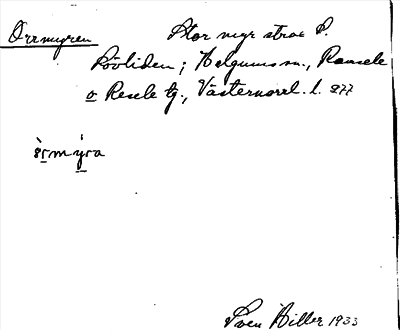 Orrmyren Stor myr strax S.
Lövliden; Helgums sn., Ramsele
o Resele tg., Västernorrl. l. 877
òrmýra
Sven Hiller 1933